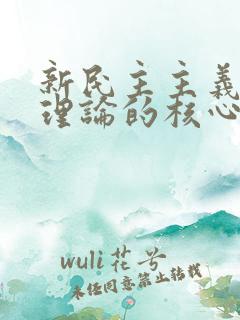 新民主主義
理論的核心
wuli花兮
未经同意禁止转载